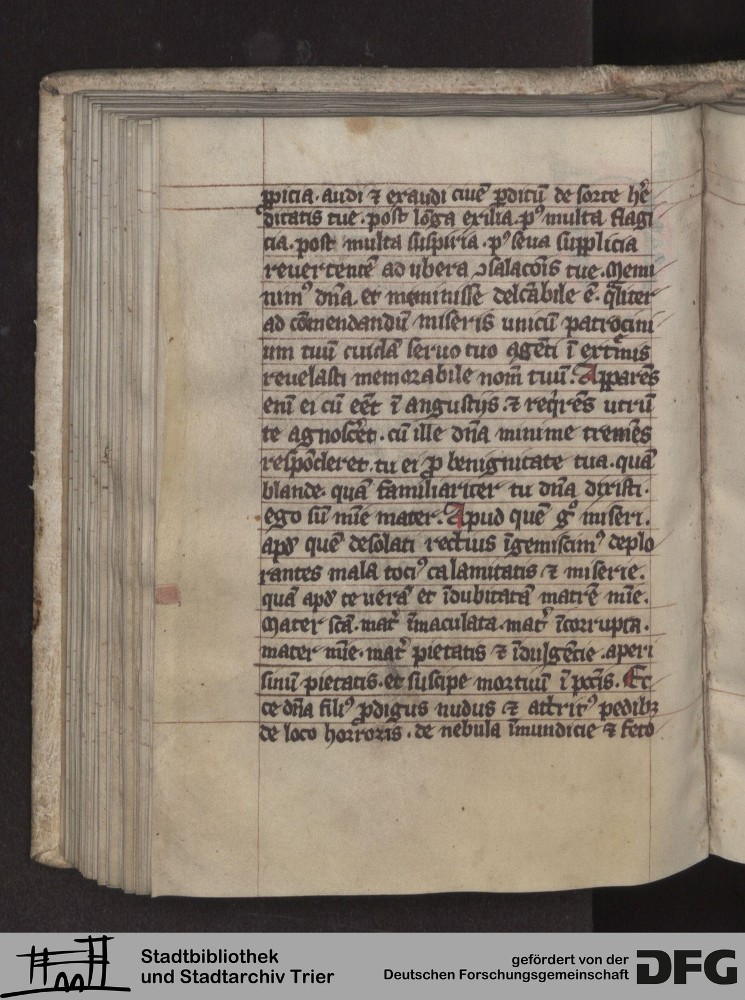 ꝓpicia. audi ⁊ exaudi ciuē ꝑditū de sorte he̅
ditatis tue. post lo̅ga exilia. p⁹ multa flagi
cia. post multa suspiria. p⁹ seua supplicia
reuertente̅ ad ubera ↄsolaco̅is tue. Memi
nim⁹ dn̅a. et meminisse delc̅abile e̅. qͣliter
ad co̅mendandu̅ miseris unicu̅ patrocini
um tuu̅ cuida̅ seruo tuo age̅ti i̅ extr̅mis
reuelasti memorabile nom̅ tuu̅. Appare̅s
eni̅ ei cu̅ ee̅t i̅ angustijs. ⁊ reqͥre̅s utru̅
te agnosc̅et. cu̅ ille dn̅a minime treme̅s
respo̅deret. tu ei ꝓ benignitate tua. qua̅
blande. qua̅ familiariter tu dn̅a dixisti.
ego su̅ mi̅e mater. Apud que̅ gͦ miseri.
apᵈ que̅ desolati rectius i̅gemiscim⁹ deplo
rantes mala toci⁹ calamitatis ⁊ miserie.
qua̅ apᵈ te uera̅ et i̅dubitata̅ matre̅ mi̅e.
Mater sc̅a. mat̅ i̅maculata. mat̅ i̅corrupta.
mater mi̅e. mat̅ pietatis ⁊ i̅dulge̅tie. aperi
sinu̅ pietatis. et suscipe mortuu̅ i̅ pcc̅is. Ec
ce dn̅a fili⁹ ꝓdigus nudus ⁊ attrit⁹ pedibꝫ
de loco horroris. de nebula i̅mundicie ⁊ feto
Stadtbibliothek
und Stadtarchiv Trier
gefördert von der
Deutschen Forschungsgemeinschaft
DFG